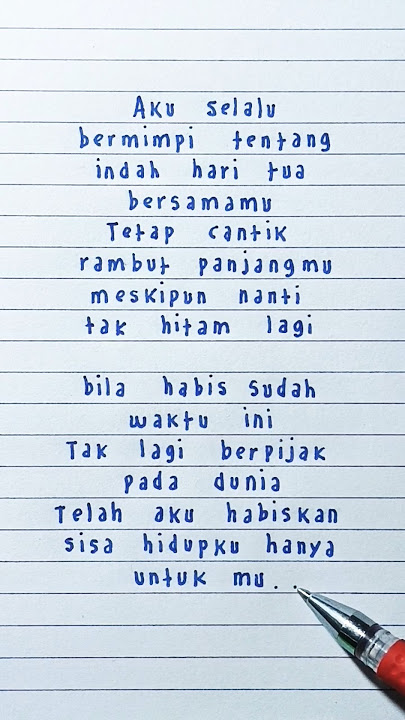 Aku selalu
bermimpi tentang
indah hari tua
bersamamu
Tetap cantik
rambut panjangmu
meskipun nanti
tak hitam lagi
bila habis sudah
waktu ini
Tak lagi berpijak
pada dunia
Telah aku habiskan
sisa hidupku hanya
untuk mu..